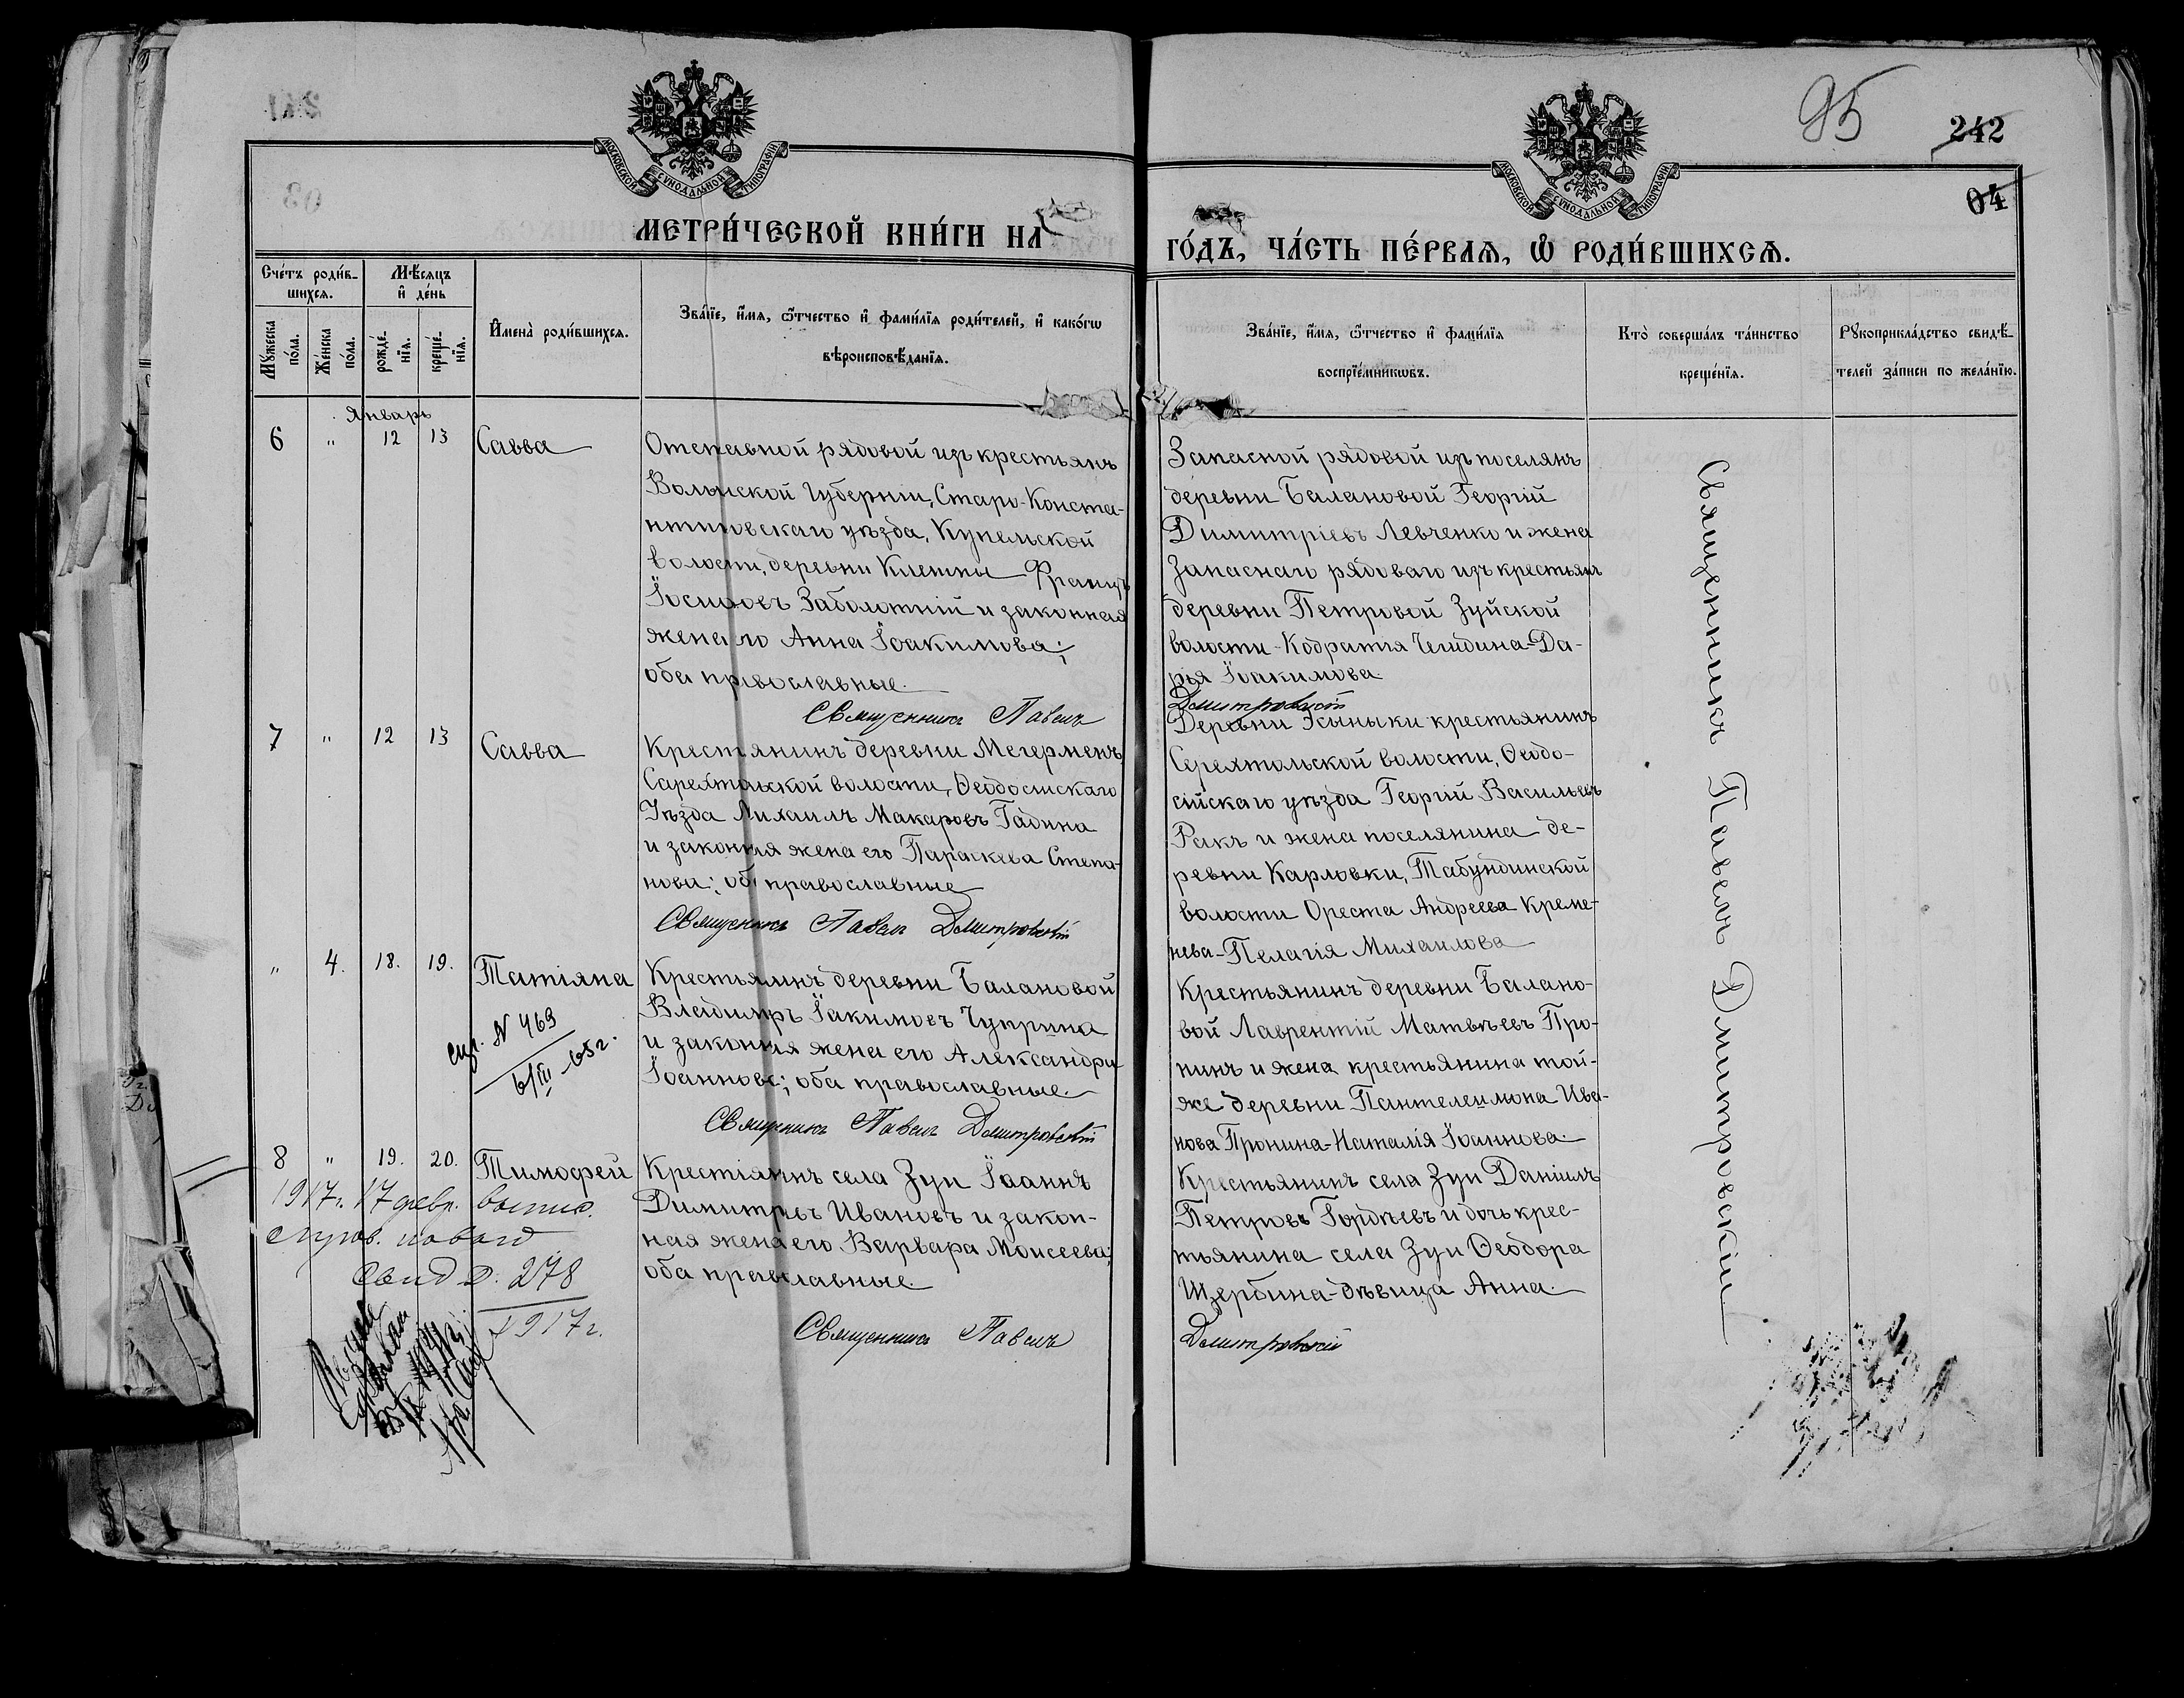 95
242
04
МОСКОВСКОЙ СѴНОДАЛЬНОЙ ТИПОГРАФІИ
МОСКОВСКОЙ СѴНОДАЛЬНОЙ ТИПОГРАФІИ
МЕТРИ́ЧЕСКОЙ КНИ́ГИ НА
ГО́ДЪ, ЧА́СТЬ ПЕ́РВАЯ, Ѿ РОДИ́ВШИХСЯ.
Сче́тъ роди́в-
шихся.
Мѣ́сяцъ
и҆ де́нь
Мꙋ́жеска
по́ла.
Же́нска
по́ла.
рожде́-
нїя.
креще́-
нїя.
И҆мена̀ роди́вшихся.
Зва́нїе, и҆́мя, ѻ҆́тчество и҆ фами́лїя роди́телей, и҆ како́гѡ
вѣроисповѣ́данїя.
Зва́нїе, и҆́мя, ѻ҆́тчество и҆ фами́лїя
воспрїе́мникѡвъ.
Кто̀ соверша́лъ та́инство
креще́нїя.
Рꙋкоприкла́дство свидѣ́-
телей за́писи по жела́нїю.
Январь
6 " 12 13 Савва
Отставной рядовой изъ крестьянъ
Волынской Губерніи, Старо-Конста-
нтиновскаго уѣзда, Купельской
волости, деревни Клетки Францъ
Іосифовъ Заболотній и законная
жена его Анна Іоакимова;
оба православные.
Священникъ Павелъ
Запасной рядовой изъ поселянъ
деревни Балановой Георгій
Димитріевъ Левченко и жена
запаснаго рядоваго изъ крестьянъ
деревни Петровой Зуйской
волости - Кодратія Да-
рія Іоакимова
Дмитровскій
7 " 12 13 Савва
Крестянинъ деревни Мегерменъ,
волости, Ѳеодосійскаго
Уѣзда Михаилъ Макаровъ Гадина
и законная жена его Параскева Степа-
нова; оба православные
Священникъ Павелъ Дмитровскій
Деревни крестьянинъ
волости, Ѳеодо-
сійскаго уѣзда Георгій Васильевъ
Ракъ и жена поселянина де-
ревни Карловки, Табулдинской
волости Ореста Андреева Креме-
нева - Пелагія Михаилова
" 4. 18. 19. Татіяна
Крестьянинъ деревни Балановой
Владиміръ Іакимовъ Чуприна
и законная жена его Александра
Іоаннова; оба православные.
Священникъ Павелъ Дмитровскій
Крестьянинъ деревни Балано-
вой Лаврентій Матвѣевъ Про-
нинъ и жена крестьянина той-
же деревни Пантелеимона Ива-
нова Пронина - Наталія Іоаннова.
N 469
6/III -65г.
8 " 19. 20. Тимофей
Крестіянинъ села Зуи Іоаннъ
Димитріевъ Ивановъ и закон-
ная жена его Варвара Моисеева;
оба православные.
Священникъ Павелъ
Крестьянинъ села Зуи Даніилъ
Петровъ Гордѣевъ и дочь крес-
тьянина села Зуи Ѳеодора
Щербина - дѣвица Анна.
Дмитровскій
1917г. 17 февр.
278
1917г.
Священникъ Павелъ Дмитровскій